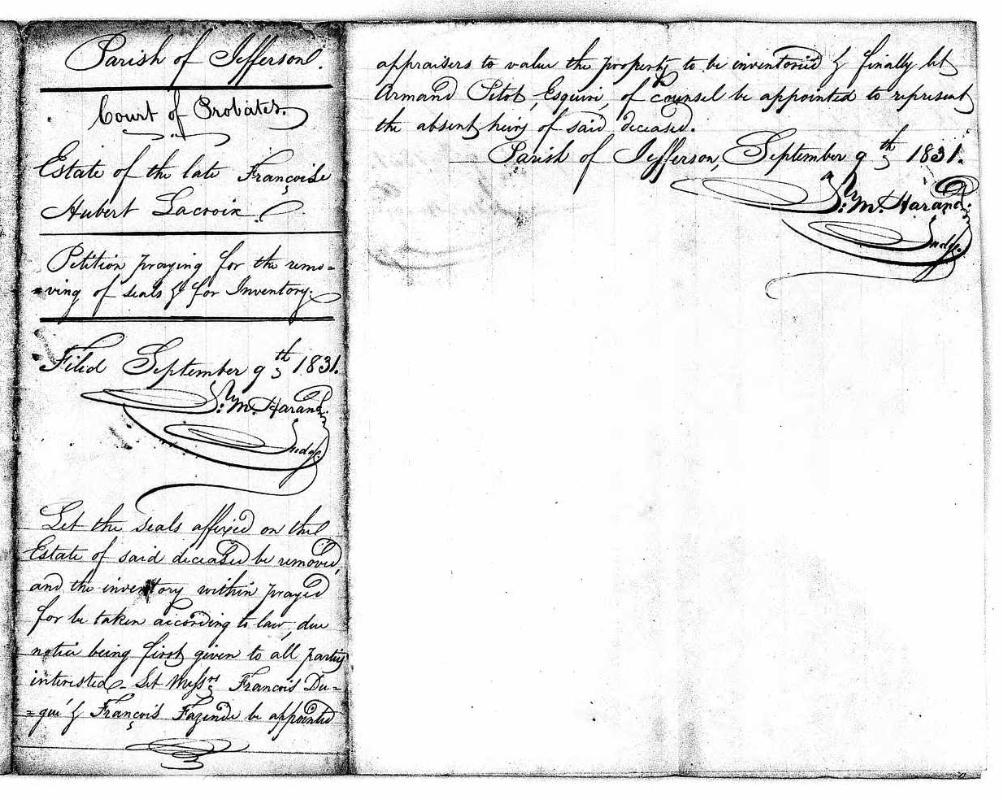 Parish of Jefferson.
Court of Probates.
Estate of the late Françoise
Hubert Lacroix.
Petition praying for the remo=
=ving of seals & for Inventory.
Filed September 9th 1831.
M. Harang.
Judge.
Let the seals affixed on the
Estate of said deceased be removed,
and the inventory within prayed
for be taken according to law, due
notice being first given to all party
interested. Let Messrs François Du=
=gué & François Fazende be appointed
appraisers to value the property to be inventoried & finally let
Armand Pitot, Esquire, of counsel be appointed to represent
the absent heirs of said deceased.
Parish of Jefferson, September 9th 1831.
M. Harang.
Judge.